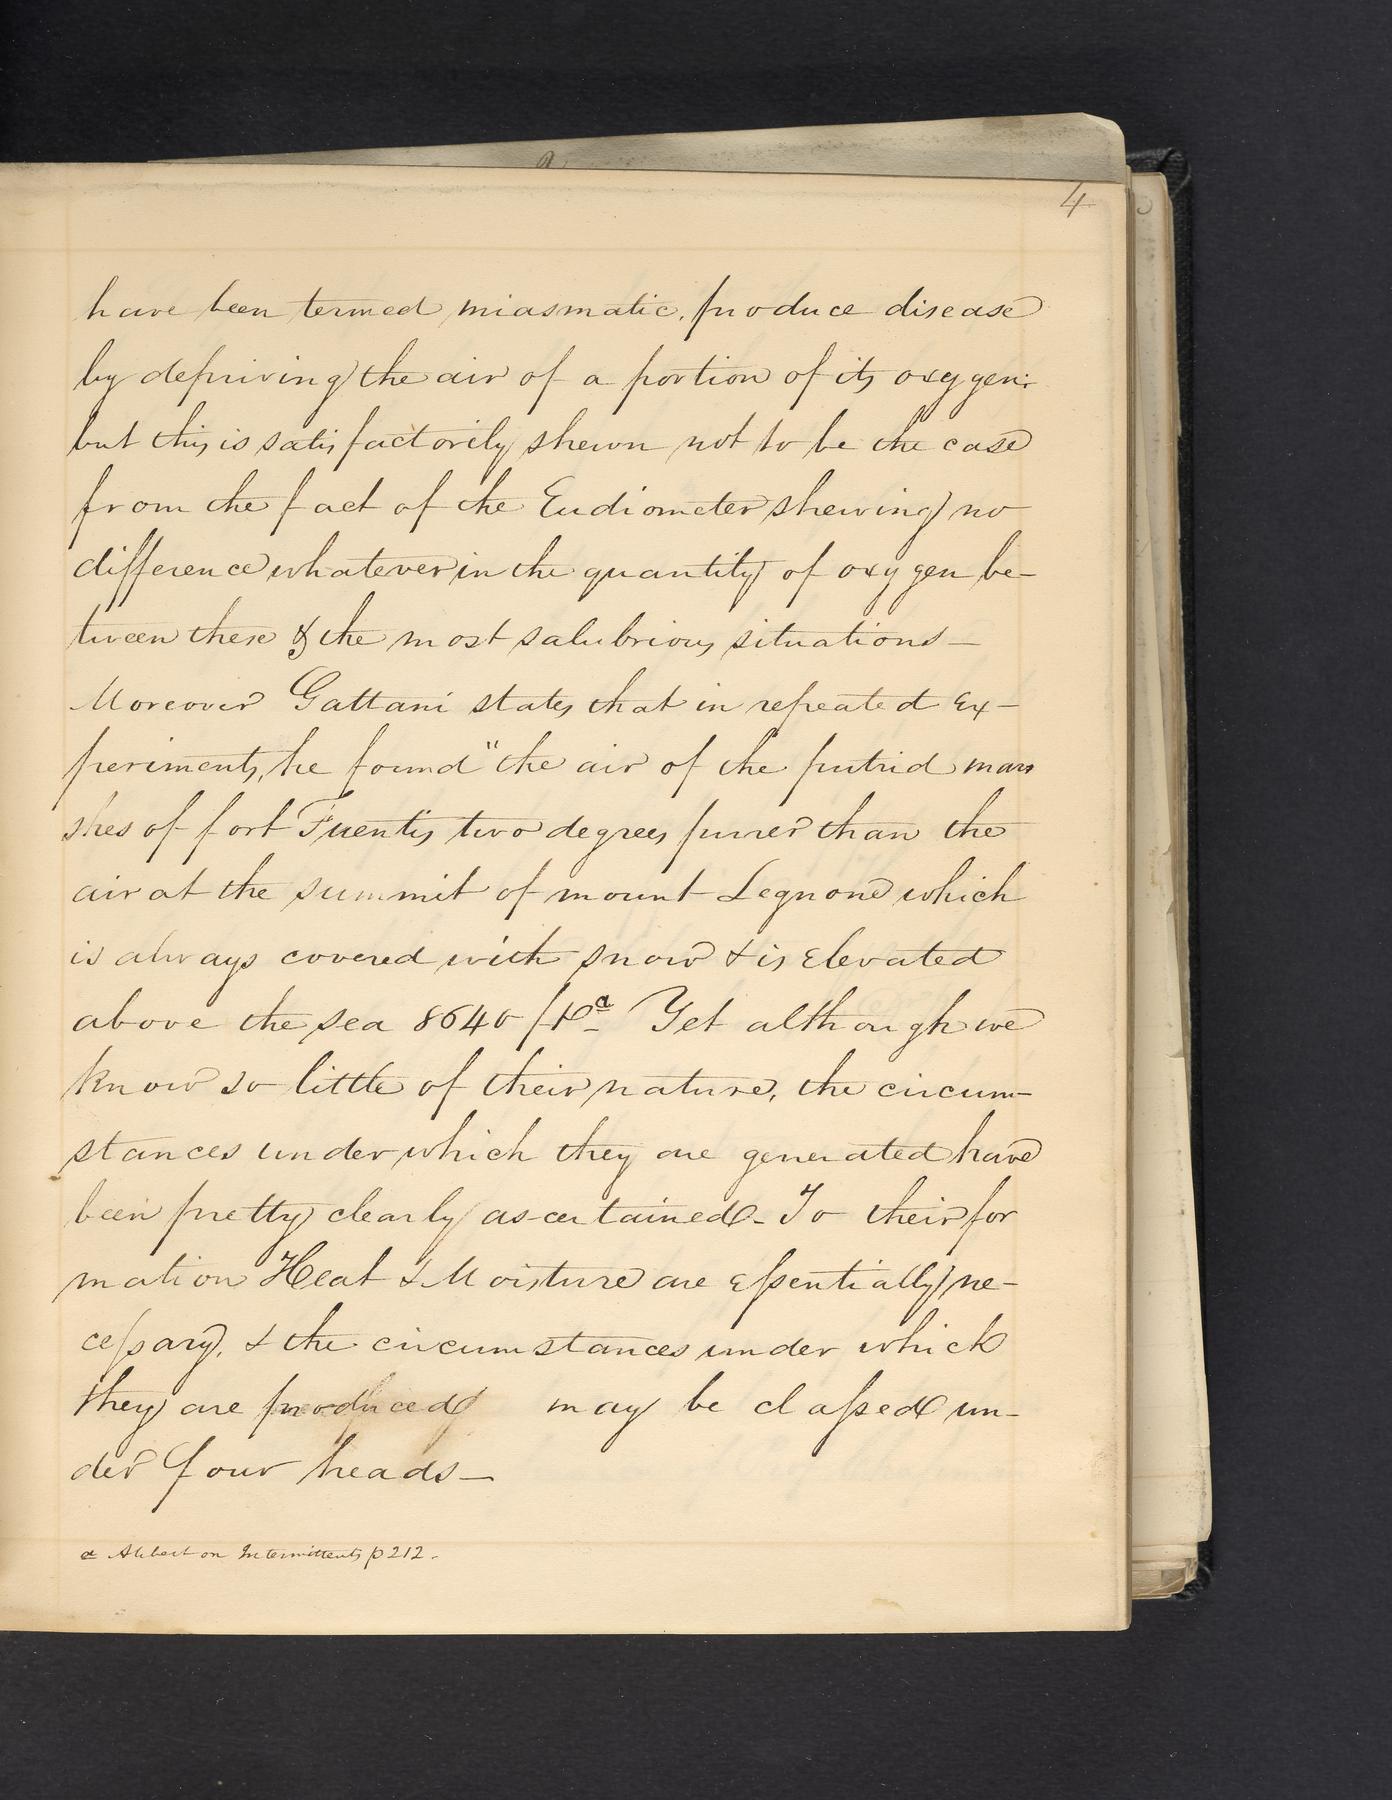 4
have been termed miasmatic, produce disease
by depriving the air of a portion of its oxygen:
but this is satisfactorily shewn not to be the case
from the fact of the Eudiometer shewing no
difference whatever in the quantity of oxygen be-
tween these & the most salubrious situations —
Moreover Gattani states that in repeated Ex-
periments, he found "the air of the putrid mars
shes of fort Fuentis two degrees purer than the
air at the summit of mount Legnone which
is always covered with snow & is Elevated
above the sea 8640 ft a Yet although we
know so little of their nature, the circum-
stances under which they are generated have
been pretty clearly ascertained - To their for
mation Heat & Moisture are Essentially ne-
cessary, & the circumstances under which
they are produced may be classed un-
der four heads —
a Alibert on Intermittents p 212.